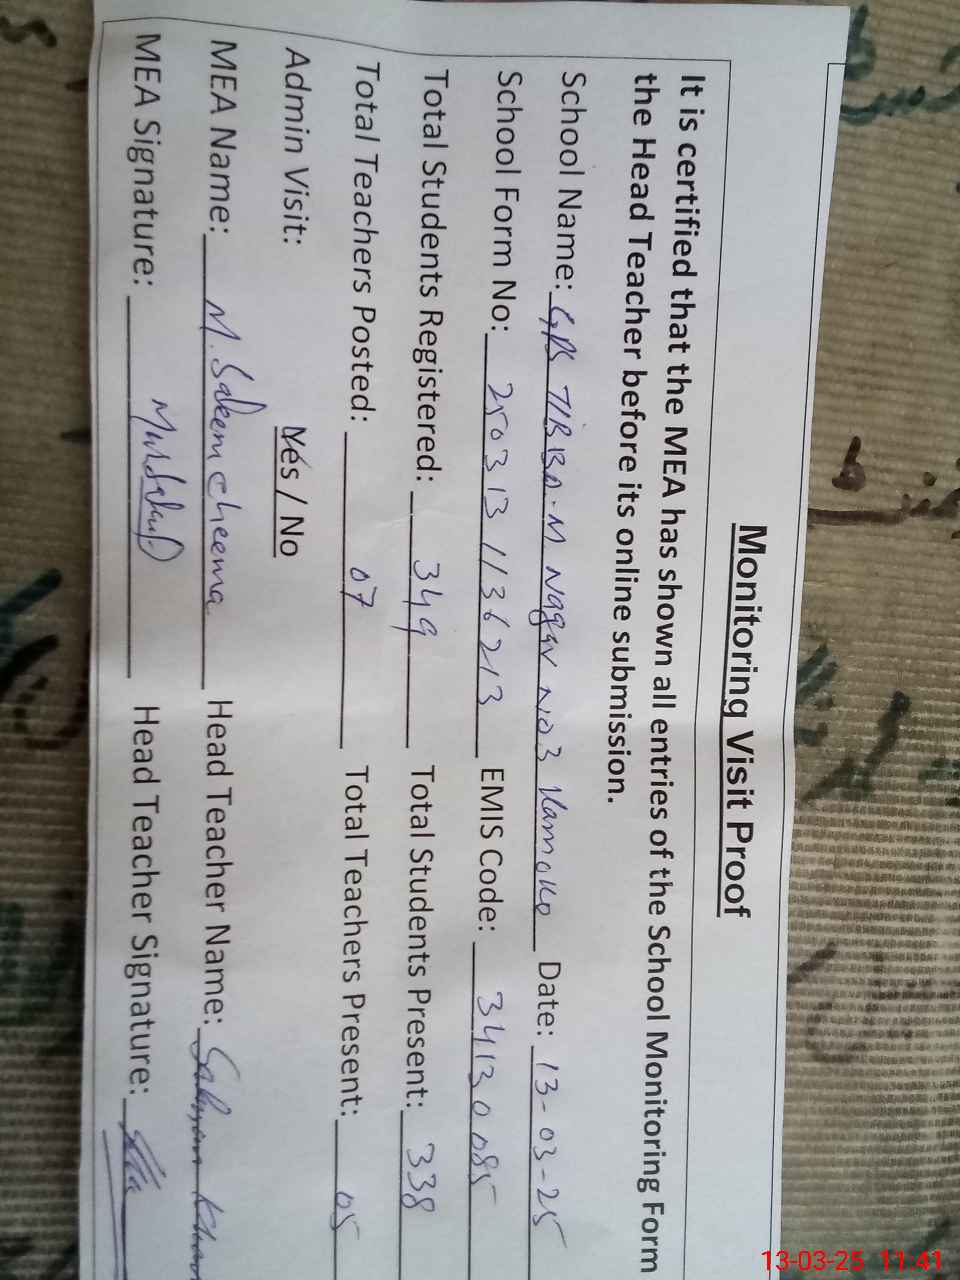 Monitoring Visit Proof
It is certified that the MEA has shown all entries of the School Monitoring Form
the Head Teacher before its online submission.
School Name: GPS TIBBA.M Nagar NO3 Kamoke Date: 13-03-25
School Form No: 2503131136213 EMIS Code: 34130085
Total Students Registered: 349 Total Students Present: 338
Total Teachers Posted: 07 Total Teachers Present: 05
Admin Visit: Yes / No
MEA Name: M. Saleem cheema Head Teacher Name:
MEA Signature: Head Teacher Signature:
13-03-25 11:41